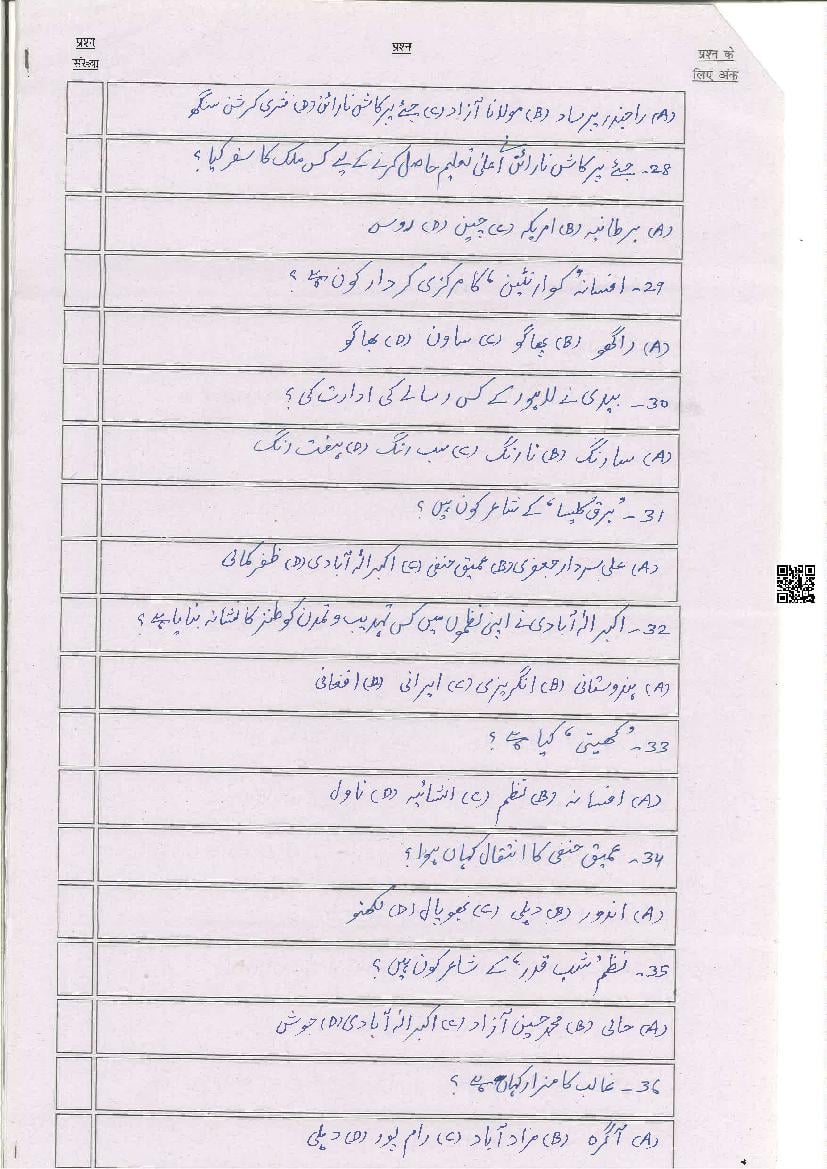 प्रश्न संख्या
प्रश्न
प्रश्न के लिए अंक
(A) راجندر پرساد (B) مولانا آزاد (C) جئے پرکاش نارائن (D) شری کرشن سنگھ
28- جئے پرکاش نارائن نے اعلیٰ تعلیم حاصل کرنے کے لیے کس ملک کا سفر کیا؟
(A) برطانیہ (B) امریکہ (C) چین (D) روس
29- افسانہ 'کوارنٹین' کا مرکزی کردار کون ہے؟
(A) راگھو (B) بھاگو (C) ساون (D) بھاگو
30- بیدی نے لاہور کے کس رسالے کی ادارت کی؟
(A) سارنگ (B) نارنگ (C) سب رنگ (D) ہفت رنگ
31- 'برق کلیسا' کے شاعر کون ہیں؟
(A) علی سردار جعفری (B) عمیق حنفی (C) اکبر الہ آبادی (D) ظفر کمالی
32- اکبر الہ آبادی نے اپنی نظموں میں کس تہذیب و تمدن کو طنز کا نشانہ بنایا ہے؟
(A) ہندوستانی (B) انگریزی (C) ایرانی (D) افغانی
33- 'کھیتی' کیا ہے؟
(A) افسانہ (B) نظم (C) انشائیہ (D) ناول
34- عمیق حنفی کا انتقال کہاں ہوا؟
(A) اندور (B) دہلی (C) بھوپال (D) لکھنو
35- نظم 'شب قدر' کے شاعر کون ہیں؟
(A) حالی (B) محمد حسین آزاد (C) اکبر الہ آبادی (D) جوش
36- غالب کا مزار کہاں ہے؟
(A) آگرہ (B) مراد آباد (C) رام پور (D) دہلی